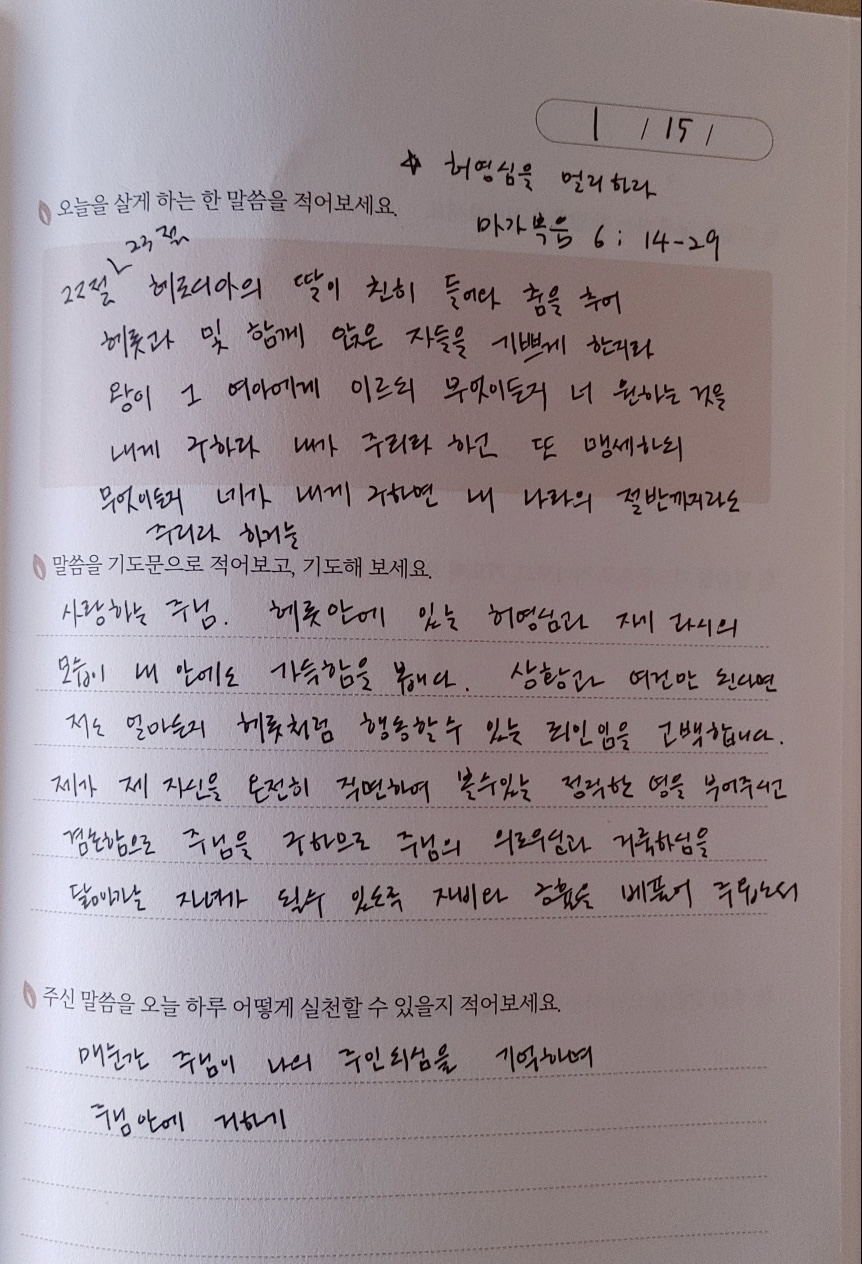 1 / 15 /
☆ 허영심을 멀리하라
오늘을 살게 하는 한 말씀을 적어보세요.
마가복음 6 : 14-29
22절~23절 헤로디아의 딸이 친히 들어와 춤을 추어
헤롯과 및 함께 앉은 자들을 기쁘게 한지라
왕이 그 여아에게 이르되 무엇이든지 너 원하는 것을
내게 구하라 내가 주리라 하고 또 맹세하되
무엇이든지 네가 내게 구하면 내 나라의 절반까지라도
주리라 하거늘
말씀을 기도문으로 적어보고, 기도해 보세요.
사랑하는 주님. 헤롯안에 있는 허영심과 자기 과시의
모습이 내 안에도 가득함을 봅니다. 상황과 여건만 된다면
저도 얼마든지 헤롯처럼 행동할 수 있는 죄인임을 고백합니다.
제가 제 자신을 온전히 직면하여 볼수있는 정직한 영을 부어주시고
겸손함으로 주님을 구하므로 주님의 의로우심과 거룩하심을
닮아가는 자녀가 될수 있도록 자비와 긍휼을 베풀어 주옵소서
주신 말씀을 오늘 하루 어떻게 실천할 수 있을지 적어보세요.
매순간 주님이 나의 주인되심을 기억하며
주님 안에 거하기